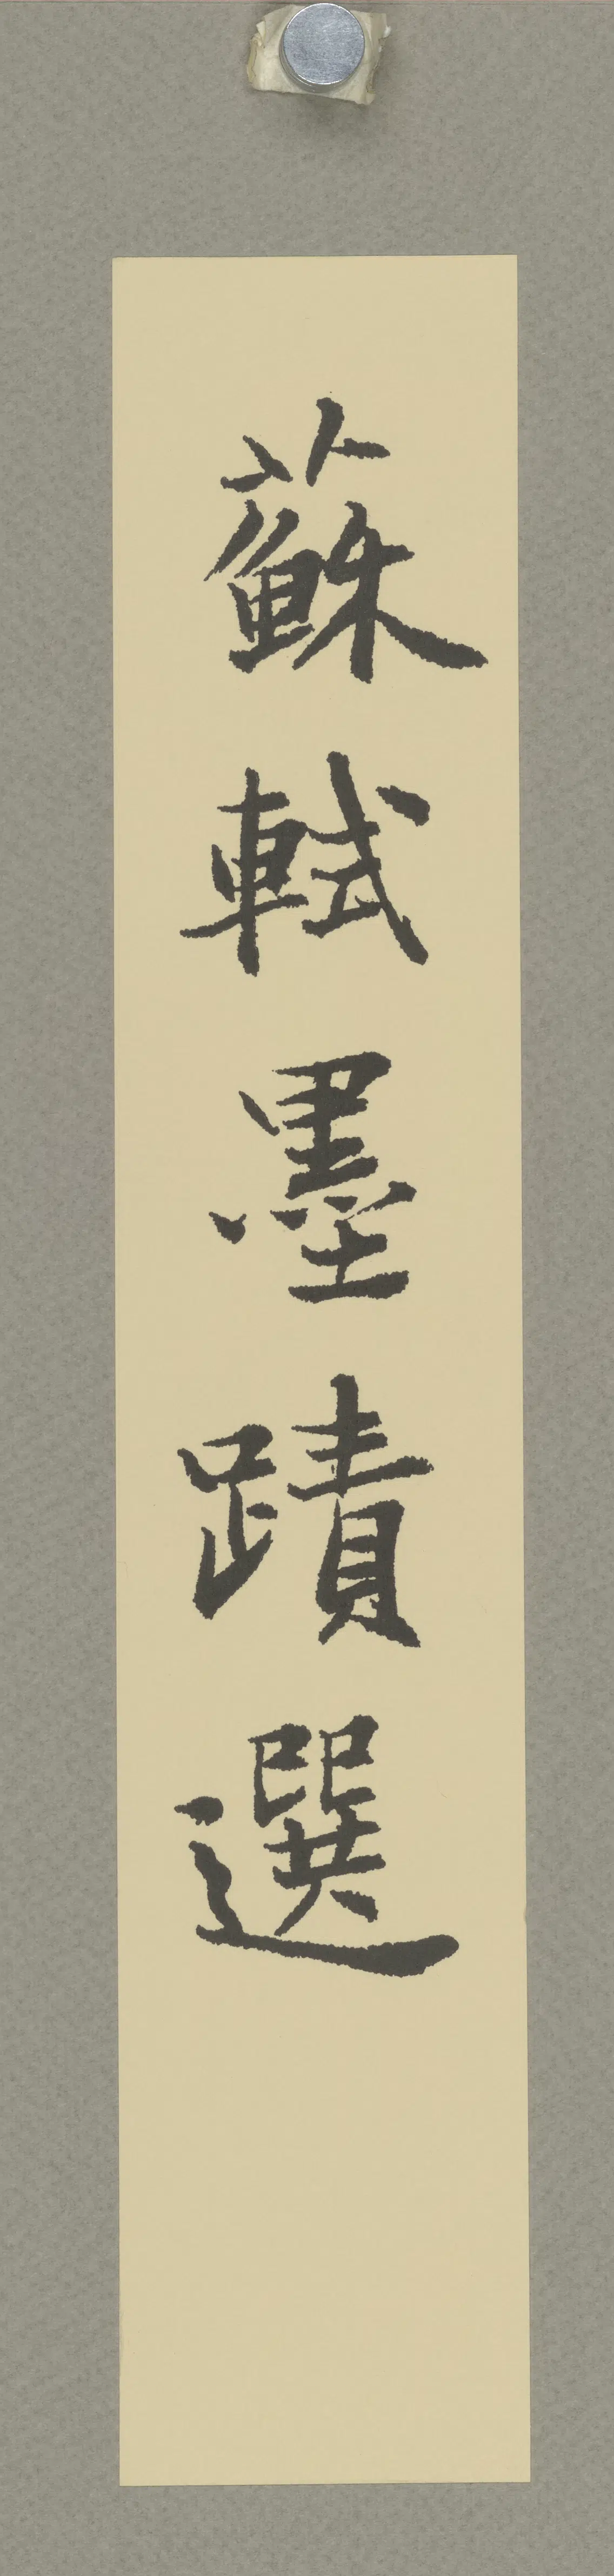 蘇軾墨蹟選